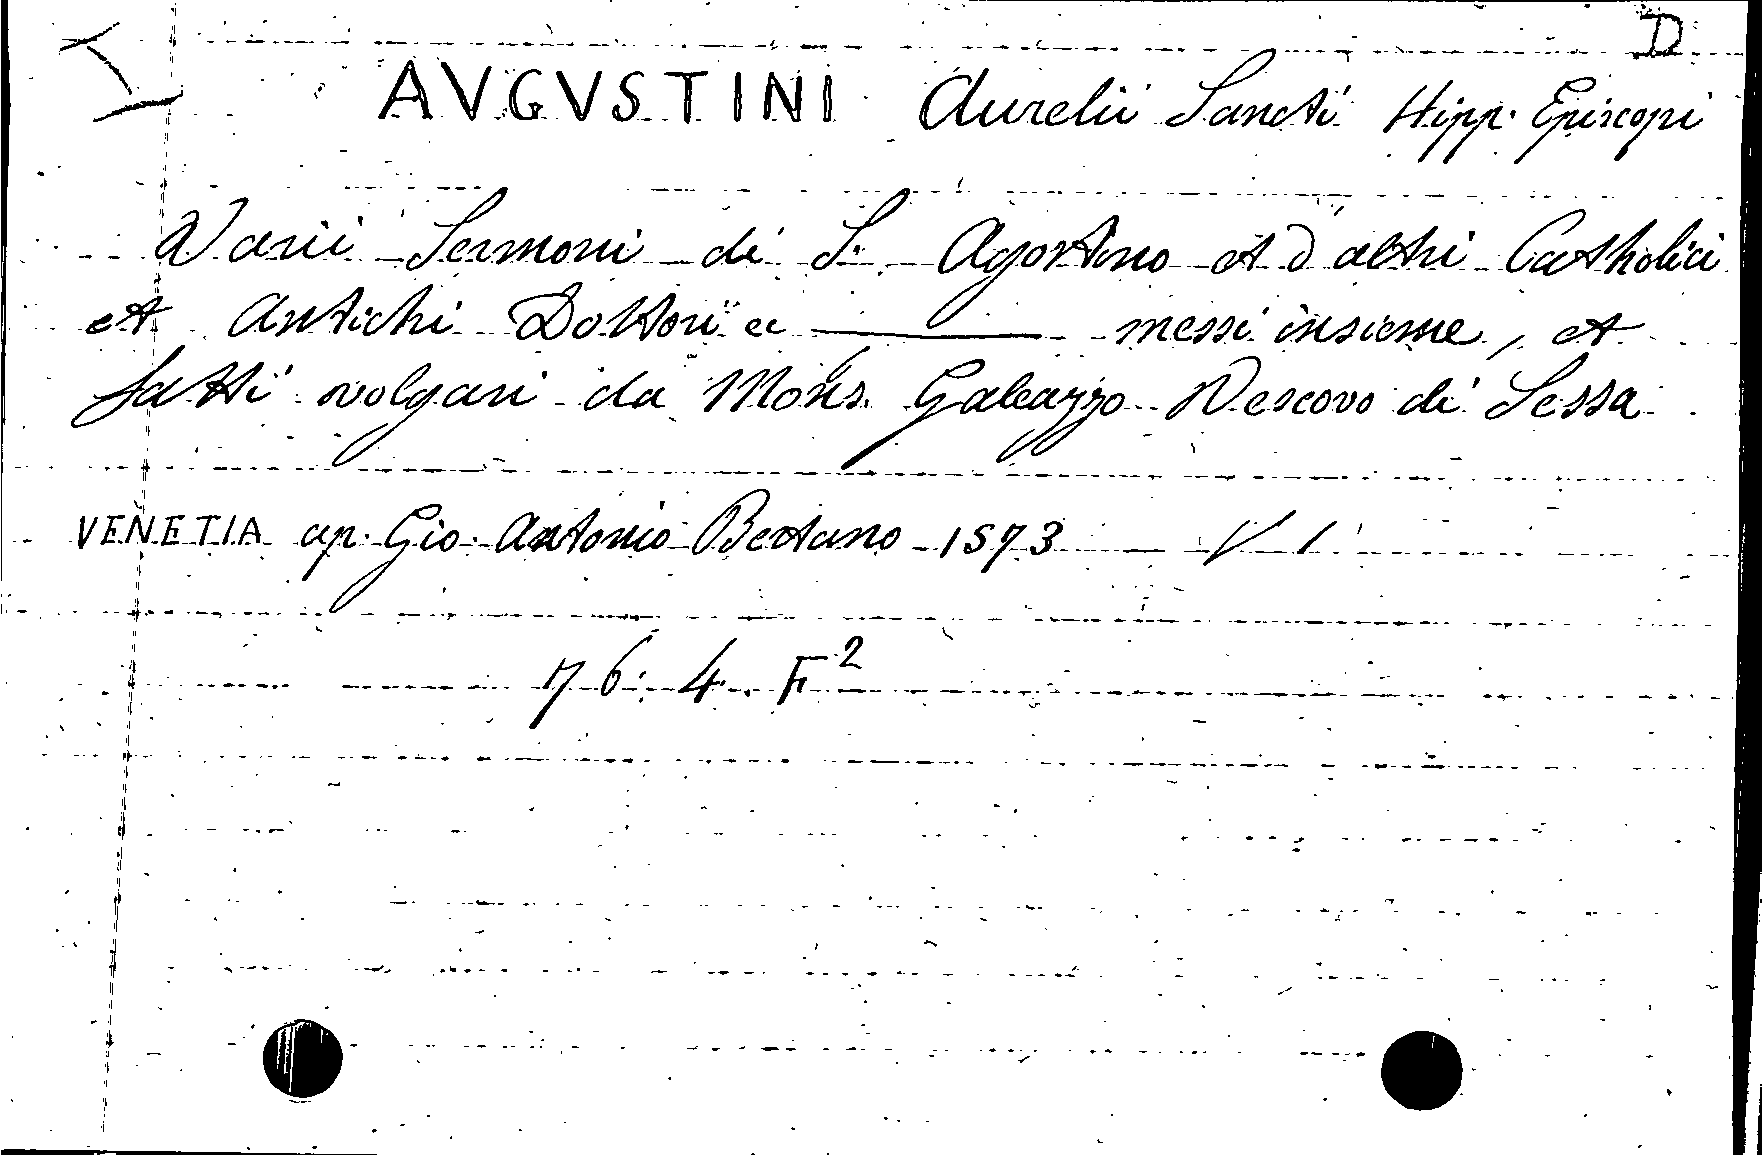 D
AVGVSTINI Aurelii Sancti Hipp. Episcopi
Varii Sermoni di S. Agostino et d'altri Catholici
et Antichi Dottori messi insieme, et
fatti volgari da Mons. Galeazzo Vescovo di Sessa
VENETIA ap. Gio. Antonio Bertano 1573 V 1
76. 4. F²